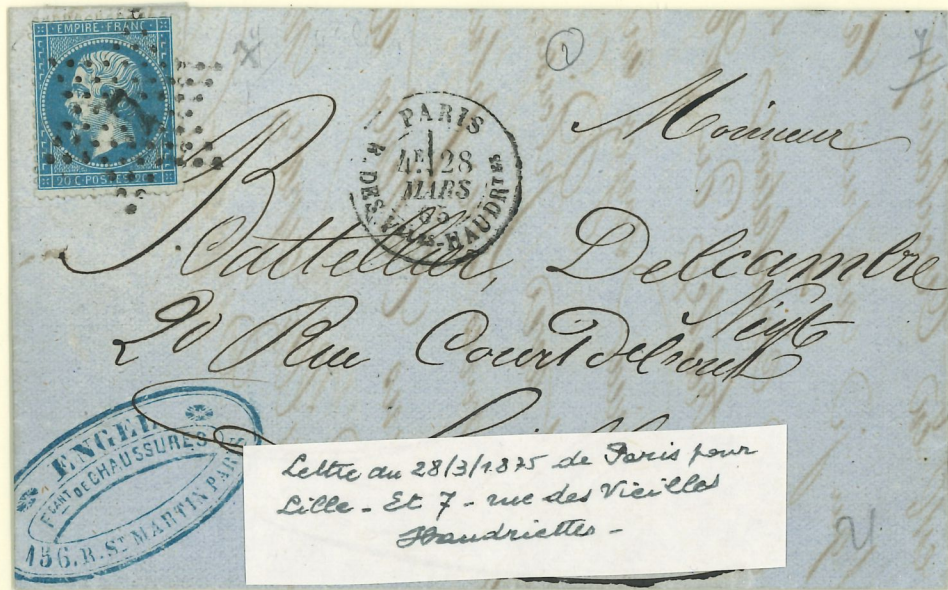 EMPIRE FRANC
20 C. POSTES
7
PARIS
4E 28
MARS
65
R. DES VIEILLES-HAUDRTTES
1
7
Monsieur
Battellier, Delcambre
Neyt
20 Rue Court Debout
ENGEL
FCANT DE CHAUSSURES
156. R. ST MARTIN PARIS
Lettre du 28/3/1875 de Paris pour
Lille - Et 7 - rue des Vieilles
Haudriettes -